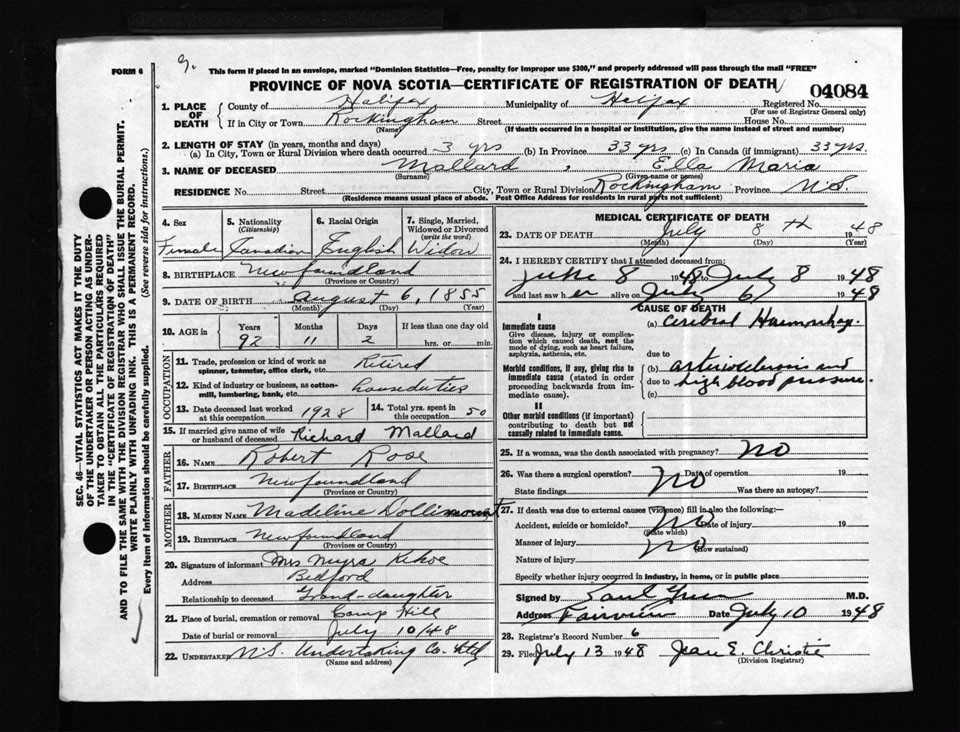 9.
FORM 6
This form if placed in an envelope, marked "Dominion Statistics—Free, penalty for improper use $300," and properly addressed will pass through the mail "FREE"
PROVINCE OF NOVA SCOTIA—CERTIFICATE OF REGISTRATION OF DEATH
04084
1. PLACE OF DEATH
County of Halifax Municipality of Halifax Registered No.
(For use of Registrar General only)
If in City or Town Rockingham Street House No.
(Name) (If death occurred in a hospital or institution, give the name instead of street and number)
2. LENGTH OF STAY (in years, months and days)
(a) In City, Town or Rural Division where death occurred 3 yrs (b) In Province 33 yrs (c) In Canada (if immigrant) 33 yrs.
3. NAME OF DECEASED Mallard, Ella Maria
(Surname) (Given name or names)
RESIDENCE No. Street City, Town or Rural Division Rockingham Province N.S.
(Residence means usual place of abode. Post Office Address for Residents in rural parts not sufficient)
4. Sex Female
5. Nationality (Citizenship) Canadian
6. Racial Origin English
7. Single, Married, Widowed or Divorced (write the word) Widow
8. BIRTHPLACE Newfoundland
(Province or Country)
9. DATE OF BIRTH August 6, 1855
(Month) (Day) (Year)
10. AGE in Years Months Days If less than one day
92 11 2 hrs. or min.
OCCUPATION
11. Trade, profession or kind of work as spinner, teamster, office clerk, etc. Retired
12. Kind of industry or business, as cotton-mill, lumbering, bank, etc. houseduties
13. Date deceased last worked at this occupation 1928
14. Total yrs. spent in this occupation 50
15. If married give name of wife or husband of deceased Richard Mallard
FATHER
16. NAME Robert Rose
17. BIRTHPLACE Newfoundland
(Province or Country)
MOTHER
18. MAIDEN NAME Madeline Dollimount
19. BIRTHPLACE Newfoundland
(Province or Country)
20. Signature of informant Mrs Myra Kehoe
Address Bedford
Relationship to deceased Grand-daughter
21. Place of burial, cremation or removal Camp Hill
Date of burial or removal July 10/48
22. UNDERTAKER N.S. Undertaking Co. Ltd
(Name and address)
MEDICAL CERTIFICATE OF DEATH
23. DATE OF DEATH July 8th 1948
(Month) (Day) (Year)
24. I HEREBY CERTIFY that I attended deceased from:
June 8 1948 to July 8 1948
and last saw her alive on July 6 1948
CAUSE OF DEATH
I
Immediate cause
Give disease, injury or complication which caused death, not the mode of dying, such as heart failure, asphyxia, asthenia, etc.
(a) Cerebral Haemorrhage
due to
Morbid conditions, if any, giving rise to immediate cause (stated in order proceeding backwards from immediate cause).
(b) arteriosclerosis and
due to high blood pressure.
(c)
II
Other morbid conditions (if important) contributing to death but not causally related to immediate cause.
25. If a woman, was the death associated with pregnancy? NO
26. Was there a surgical operation? Date of operation 19
State findings NO Was there an autopsy?
27. If death was due to external causes (violence) fill in also the following:—
Accident, suicide or homicide? NO Date of injury 19
(State which)
Manner of injury NO
(How sustained)
Nature of injury
Specify whether injury occurred in industry, in home, or in public place
Signed by M.D.
Address Fairview Date July 10 1948
28. Registrar's Record Number 6
29. Filed July 13 1948 Jean E. Christie
(Division Registrar)
SEC. 46—VITAL STATISTICS ACT MAKES IT THE DUTY
OF THE UNDERTAKER OR PERSON ACTING AS UNDER-
TAKER TO OBTAIN ALL THE PARTICULARS REQUIRED
IN THE "CERTIFICATE OF REGISTRATION OF DEATH"
AND TO FILE THE SAME WITH THE DIVISION REGISTRAR WHO SHALL ISSUE THE BURIAL PERMIT.
WRITE PLAINLY WITH UNFADING INK. THIS IS A PERMANENT RECORD.
Every item of information should be carefully supplied. (See reverse side for instructions.)